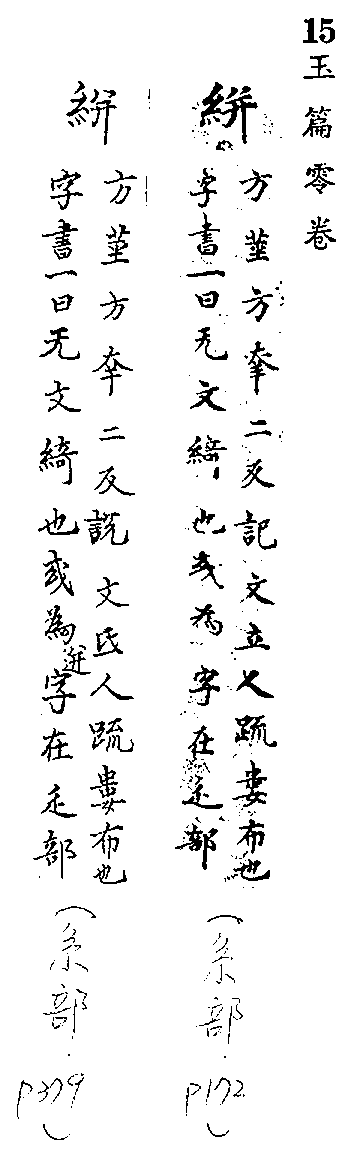 15
玉篇零卷
絣
方莖方幸二反記文立人䟽婁布也
字書一曰无文綺也或為字在辵部
(糸部.p172)
絣
方莖方幸二反説文氐人䟽婁布也
字書一曰无文綺也或為迸字在辵部
(糸部.p379)